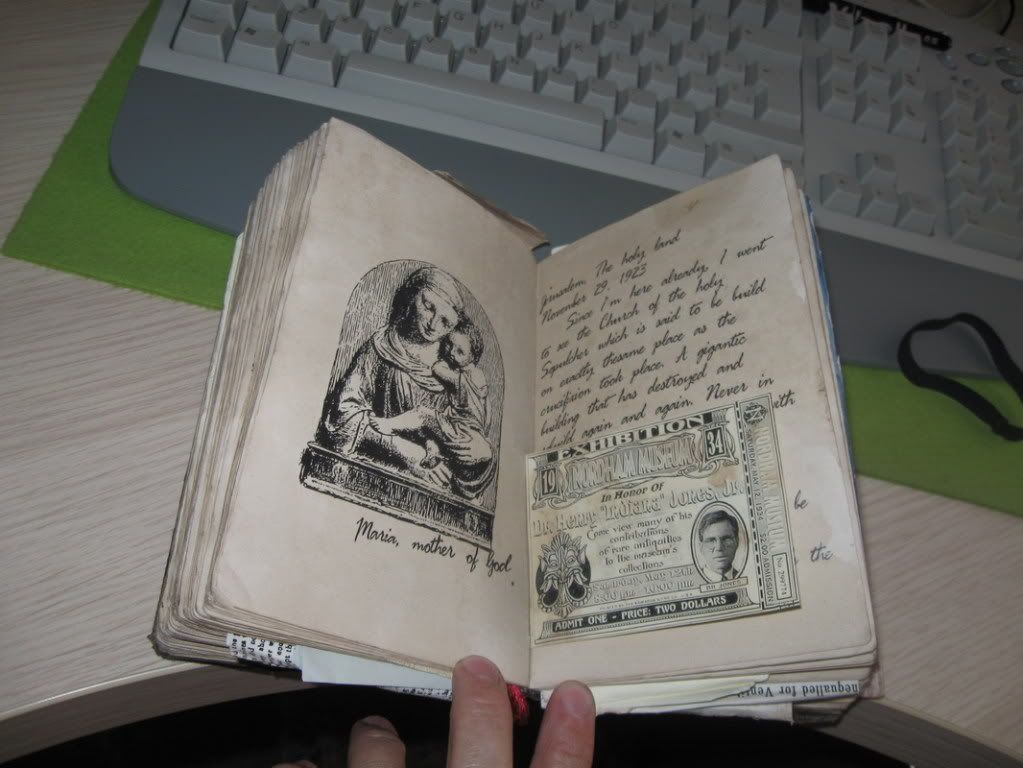 Maria, mother of God
Jerusalem. The holy land
November 29. 1923
Since I'm here already, I went
to see the Church of the holy
Sepulcher which is said to be build
on exactly thesame place as the
crucifixion took place. A gigantic
building that has destroyed and
build again and again. Never in
with
be
the
EXHIBITION
19 MUSEUM 34
In Honor Of
Dr. Henry "Indiana" Jones, Jr.
Come view many of his
contributions
of rare antiquities
to the museum's
collections
Saturday, May 12th
DR. JONES
ADMIT ONE - PRICE: TWO DOLLARS
$2.00 ADMISSION
unequalled for Vers